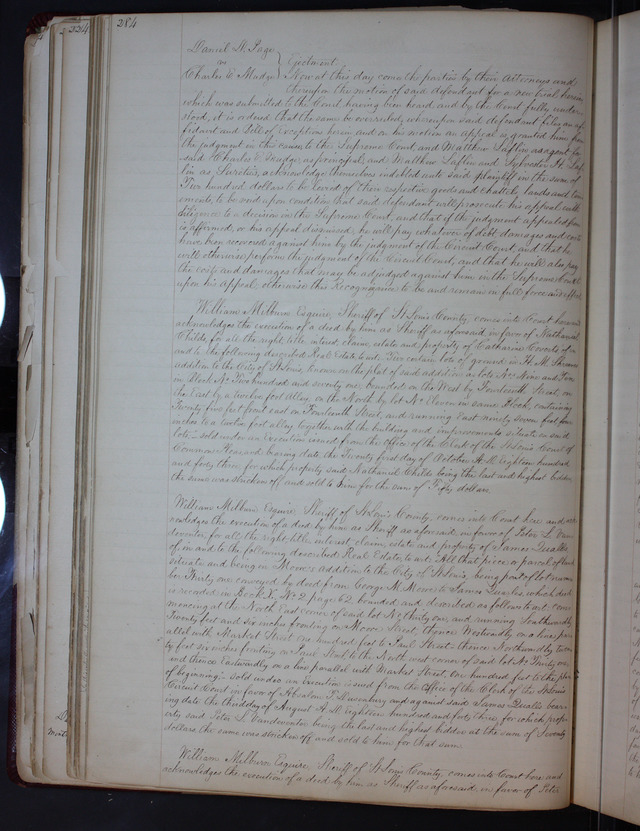 284
224
Daniel D. Page
vs } Ejectment.
Charles E. Mudge } Now at this day come the parties by their Attorneys and
thereupon the motion of said defendant for a new trial herein
which was submitted to the Court having been heard and by the Court fully under-
stood, it is ordered that the same be overruled, whereupon said defendant files an af-
fidavit and Bill of Exceptions herein and on his motion an appeal is granted him from
the judgment in this cause, to the Supreme Court and Matthew Laflin as agent for
said Charles E. Mudge as principal, and Matthew Laflin and Sylvester H. Laf-
lin as Sureties, acknowledge themselves indebted unto said plaintiff in the sum of
hundred dollars to be levied of their respective goods and chattels, lands and ten-
ements, to be void upon condition that said defendant will prosecute his appeal with
diligence to a decision in the Supreme Court, and that if the judgment appealed from
is affirmed, or his appeal dismissed, he will pay whatever of debt damages and costs
have been recovered against him by the judgment of the Circuit Court, and that he
will otherwise perform the judgment of the Circuit Court, and that he will also pay
the costs and damages that may be adjudged against him in the Supreme Court
upon his appeal otherwise this Recognizance to be and remain in full force and effect.
William Milburn Esquire, Sheriff of St Louis County, comes into Court here and
acknowledges the execution of a deed by him as Sheriff as aforesaid, in favor of Nathaniel
Childs, for all the right, title, interest, claim, estate and property of Catharine of in
and to the following described Real Estate, to wit: Two certain lots of ground in H. M.
addition to the City of St Louis, known on the plat of said addition as lots Nos Nine and Ten
in Block No Two hundred and seventy one, bounded on the West by Fourteenth Street, on
the East by a twelve foot alley, on the North by lot No Eleven in same Block, containing
Twenty five feet front each on Fourteenth Street, and running East ninety seven feet four
inches to a twelve foot alley together with the building and improvements situate on said
lots; sold under an Execution issued from the Office of the Clerk of the St Louis Court of
Common Pleas and bearing date the Twenty first day of October A.D. Eighteen hundred
and forty three, for which property said Nathaniel Childs being the last and highest bidder
the same was stricken off and sold to him for the sum of Fifty dollars.
William Milburn Esquire, Sheriff of St Louis County, comes into Court here and ack-
nowledges the execution of a deed by him as Sheriff as aforesaid, in favor of Peter L. Van-
deventer, for all the right, title, interest, claim, estate and property of James Qualls
of in and to the following described Real Estate, to wit: All that piece or parcel of land
situate and being in Moore's addition to the City of St Louis, being part of lot num-
ber Thirty one conveyed by deed from George M. Moore to James Qualls, which deed
is recorded in Book X. No 2 page 62, bounded and described as follows to wit, com-
mencing at the North East corner of said lot No thirty one, and running Southwardly
Twenty feet and six inches fronting on Moore Street, thence Westwardly on a line par-
allel with Market Street one hundred feet to Paul Street, thence Northwardly twen-
ty feet six inches fronting on Paul Street to the North west corner of said lot No Thirty one
and thence Eastwardly on a line parallel with Market Street, One hundred feet to the place
of beginning; sold under an Execution issued from the Office of the Clerk of the St Louis
Circuit Court in favor of Absalom and against said James Qualls bear-
ing date the third day of August A.D. Eighteen hundred and forty three, for which prop-
erty said Peter L. Vandeventer being the last and highest bidder at the sum of Seventy
dollars the same was stricken off and sold to him for that sum.
William Milburn Esquire, Sheriff of St Louis County, comes into Court here and
acknowledges the execution of a deed by him as Sheriff as aforesaid, in favor of Peter